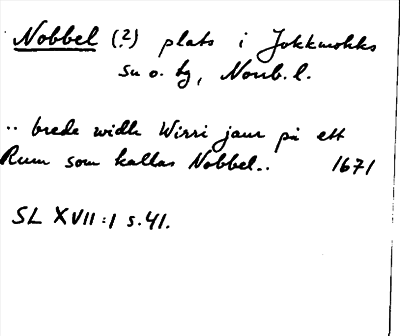 Nobbel (?) plats i Jokkmokks
sn o. tg, Norrb. l.
.. brede widh Wirri jaur på ett
Rum som kallas Nobbel..    1671
SL XVII:1 s. 41.